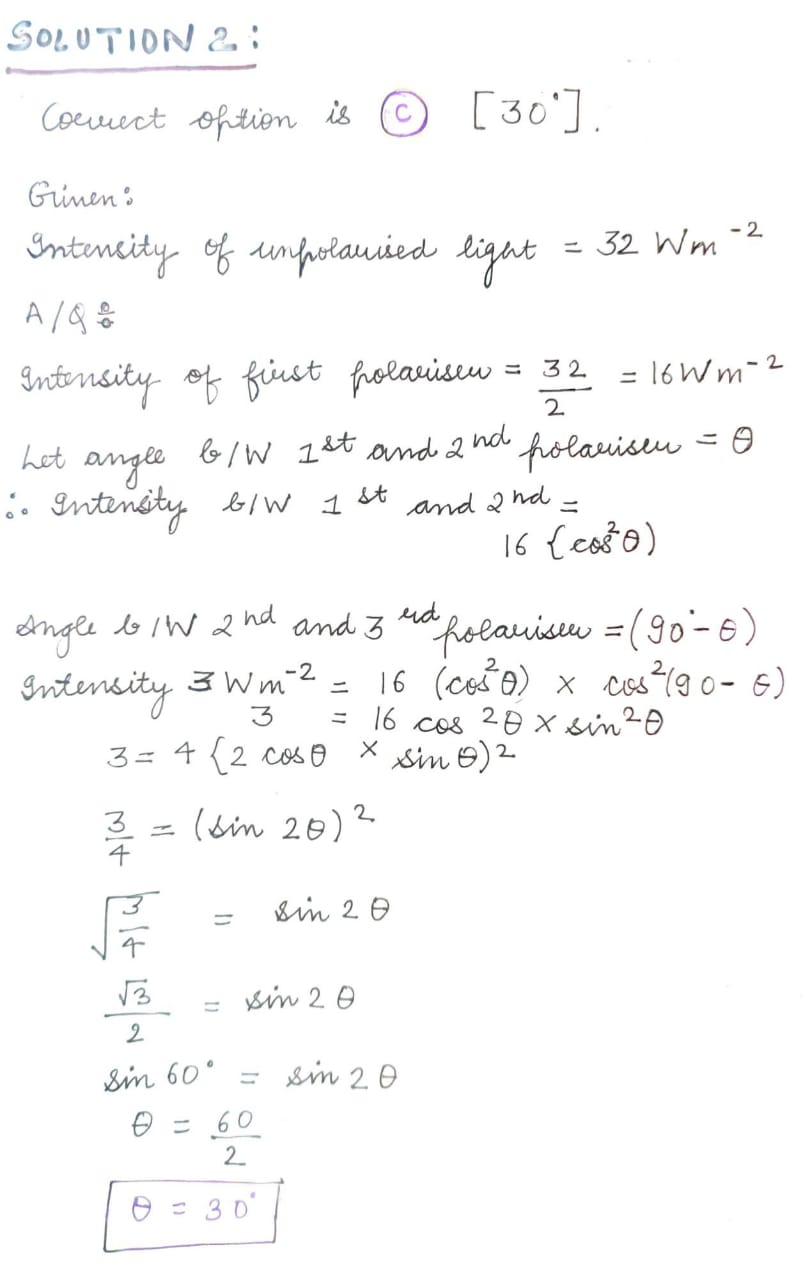 SOLUTION 2:
Correct option is (C) [30°].
Given:
Intensity of unpolarised light = 32 Wm⁻²
A/Q:
Intensity of first polariser = 32/2 = 16Wm⁻²
Let angle b/W 1st and 2nd polariser = θ
∴ Intensity b/W 1st and 2nd =
16 {cos²θ)
Angle b/W 2nd and 3rd polariser = (90° - θ)
Intensity 3 Wm⁻² = 16 (cos²θ) × cos²(90 - θ)
3 = 16 cos 2θ × sin 2θ
3 = 4 {2 cos θ × sin θ)²
3/4 = (sin 2θ)²
√3/4 = sin 2θ
√3/2 = sin 2θ
sin 60° = sin 2θ
θ = 60/2
θ = 30°